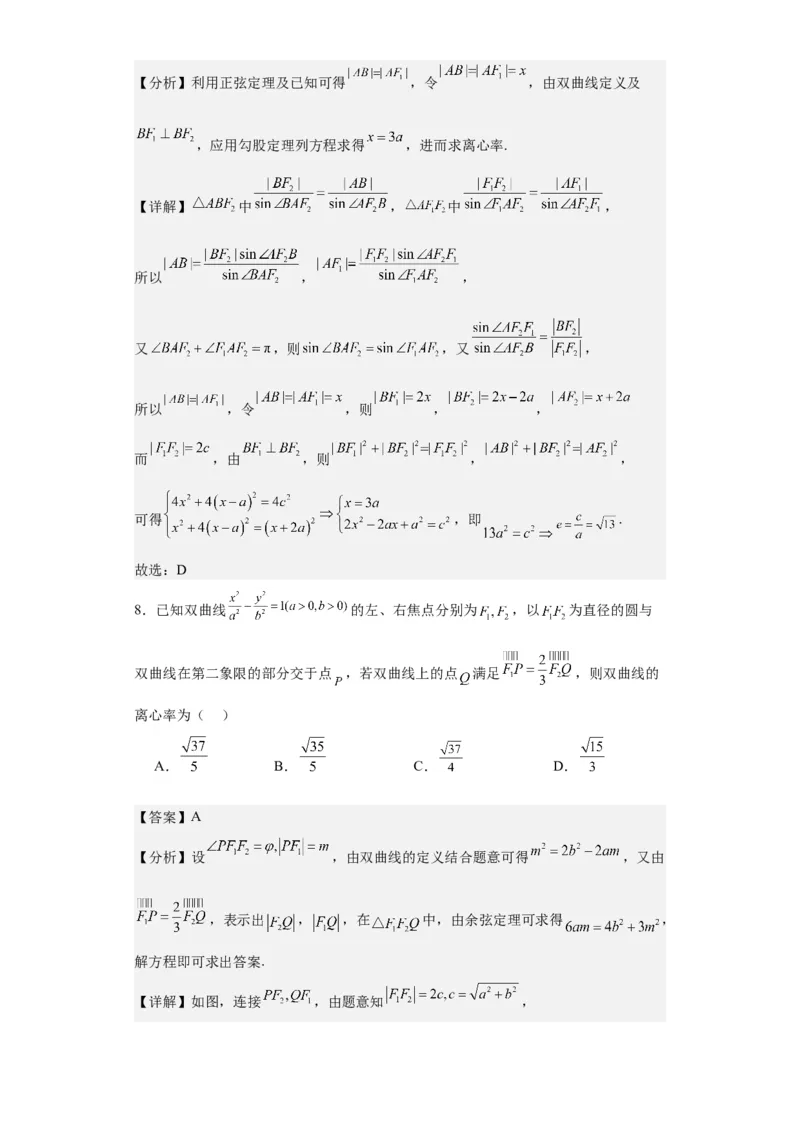 【分析】利用正弦定理及已知可得|AB|=|AF₁|，令|AB|=|AF₁|=x，由双曲线定义及
BF₁⊥BF₂，应用勾股定理列方程求得x=3a，进而求离心率.
【详解】△ABF₂中|BF₂|/sin∠BAF₂=|AB|/sin∠AF₂B，△AF₁F₂中|F₁F₂|/sin∠F₁AF₂=|AF₁|/sin∠AF₂F₁，
所以|AB|=|BF₂|sin∠AF₂B/sin∠BAF₂，|AF₁|=|F₁F₂|sin∠AF₂F₁/sin∠F₁AF₂，
又∠BAF₂+∠F₁AF₂=π，则sin∠BAF₂=sin∠F₁AF₂，又sin∠AF₂F₁/sin∠AF₂B=|BF₂|/|F₁F₂|，
所以|AB|=|AF₁|，令|AB|=|AF₁|=x，则|BF₁|=2x，|BF₂|=2x−2a，|AF₂|=x+2a
而|F₁F₂|=2c，由BF₁⊥BF₂，则|BF₁|²+|BF₂|²=|F₁F₂|²，|AB|²+|BF₂|²=|AF₂|²，
可得{4x²+4(x−a)²=4c² x²+4(x−a)²=(x+2a)²⇒{x=3a 2x²−2ax+a²=c²，即13a²=c²⇒e=c/a=√13.
故选：D
8．已知双曲线x²/a²−y²/b²=1(a>0,b>0)的左、右焦点分别为F₁,F₂，以F₁F₂为直径的圆与
双曲线在第二象限的部分交于点P，若双曲线上的点Q满足F₁P=2/3F₂Q，则双曲线的
离心率为（ ）
A．√37/5 B．√35/5 C．√37/4 D．√15/3
【答案】A
【分析】设∠PF₁F₂=φ,|PF₁|=m，由双曲线的定义结合题意可得m²=2b²−2am，又由
F₁P=2/3F₂Q，表示出|F₂Q|，|F₁Q|，在△F₁F₂Q中，由余弦定理可求得6am=4b²+3m²，
解方程即可求出答案.
【详解】如图，连接PF₂,QF₁，由题意知|F₁F₂|=2c,c=√(a²+b²)，